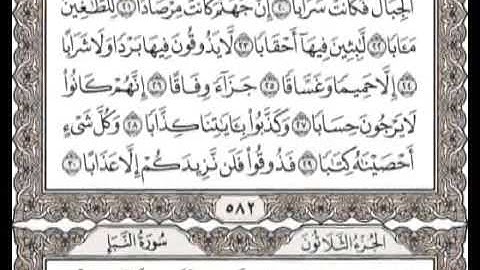 الْجِبَالُ فَكَانَتْ سَرَابًا ٢٠ إِنَّ جَهَنَّمَ كَانَتْ مِرْصَادًا ٢١ لِّلطَّٰغِينَ
مَـَٔابًا ٢٢ لَّٰبِثِينَ فِيهَآ أَحْقَابًا ٢٣ لَّا يَذُوقُونَ فِيهَا بَرْدًا وَلَا شَرَابًا
٢٤ إِلَّا حَمِيمًا وَغَسَّاقًا ٢٥ جَزَآءً وِفَاقًا ٢٦ إِنَّهُمْ كَانُوا۟
لَا يَرْجُونَ حِسَابًا ٢٧ وَكَذَّبُوا۟ بِـَٔايَٰتِنَا كِذَّابًا ٢٨ وَكُلَّ شَىْءٍ
أَحْصَيْنَٰهُ كِتَٰبًا ٢٩ فَذُوقُوا۟ فَلَن نَّزِيدَكُمْ إِلَّا عَذَابًا ٣٠
٥٨٢
الجُزْءُ الثَّلَاثُونَ
سُورَةُ النَّبَإِ